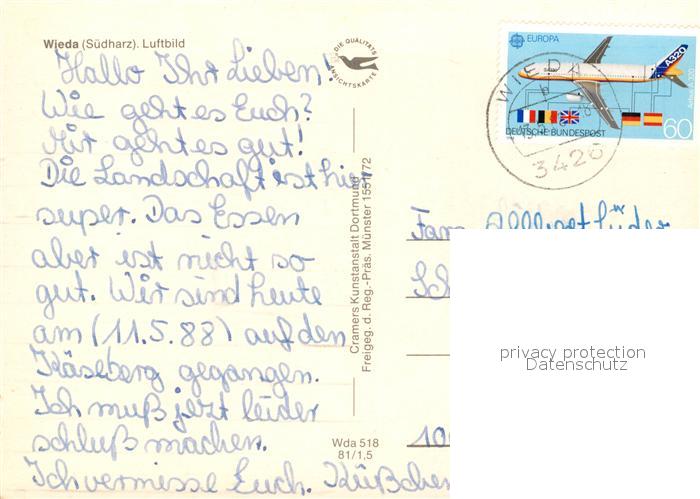 Wieda (Südharz). Luftbild
DIE QUALITÄTS
ANSICHTSKARTE
Hallo Ihr Lieben!
Wie geht es Euch?
Mir geht es gut!
Die Landschaft ist hier
super. Das Essen
aber ist nicht so
gut. Wir sind heute
am (11.5.88) auf den
Käseberg gegangen.
Ich muß jezt leider
schluß machen.
Ich vermisse Euch. Küßchen
Cramers Kunstanstalt Dortmund
Freigeg. d. Reg.-Präs. Münster 1551/72
Wda 518
81/1,5
EUROPA
A320
60
DEUTSCHE BUNDESPOST
WIEDA
3426
Fam.
Sch
10
privacy protection
Datenschutz